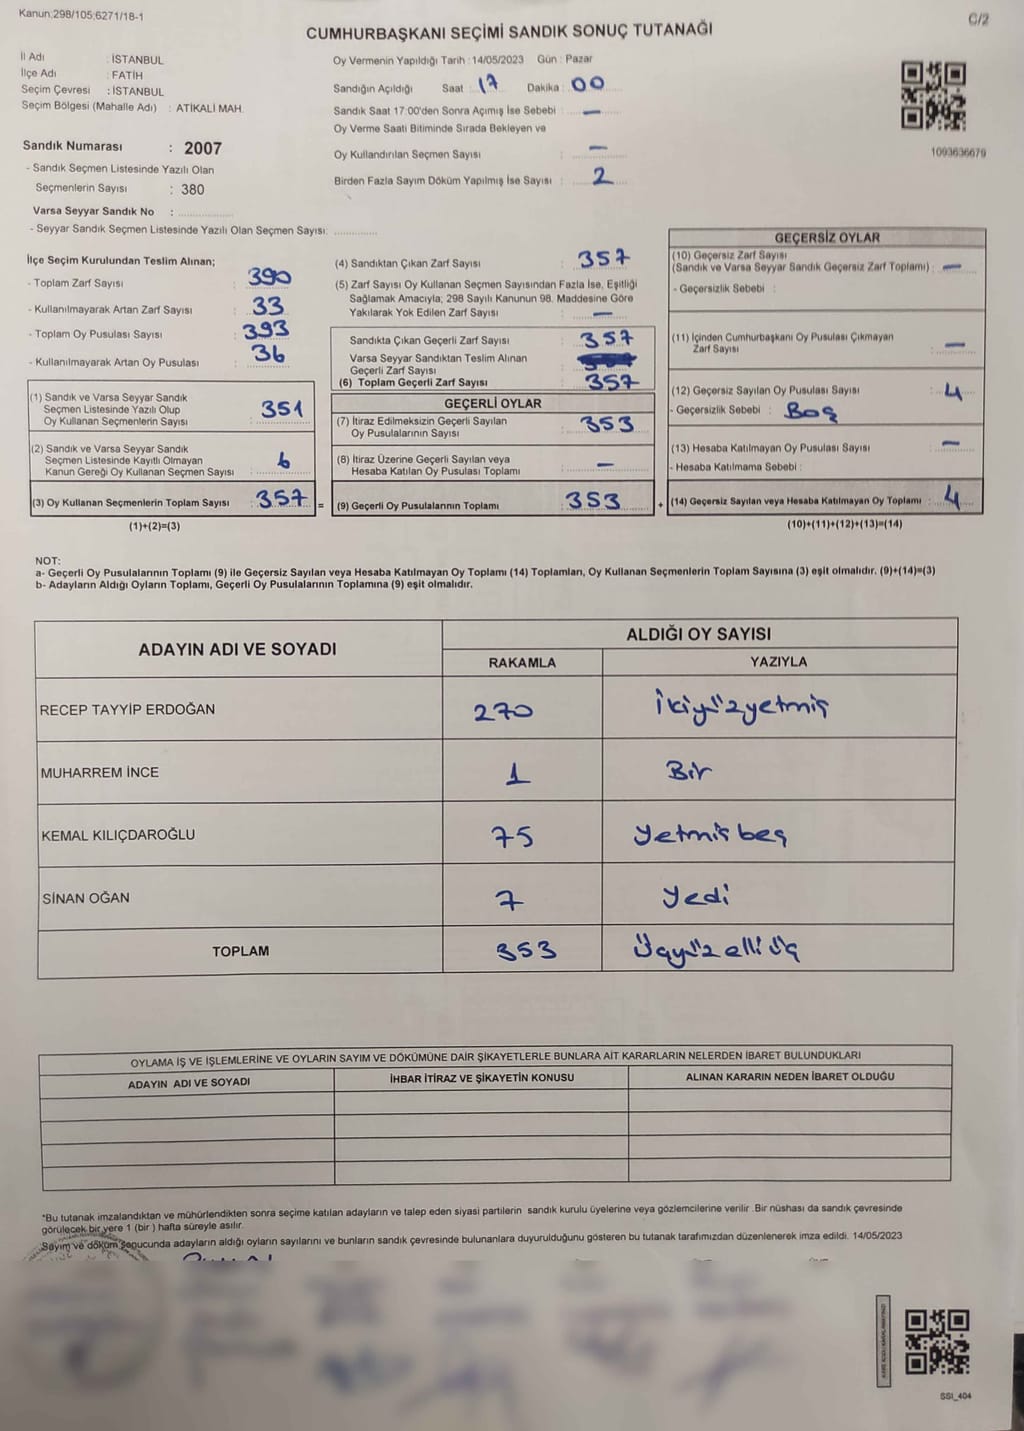 Kanun:298/105;6271/18-1
C/2
CUMHURBAŞKANI SEÇİMİ SANDIK SONUÇ TUTANAĞI
İl Adı : İSTANBUL
İlçe Adı : FATİH
Seçim Çevresi : İSTANBUL
Seçim Bölgesi (Mahalle Adı) : ATİKALİ MAH.
Sandık Numarası : 2007
- Sandık Seçmen Listesinde Yazılı Olan
Seçmenlerin Sayısı : 380
Varsa Seyyar Sandık No :
- Seyyar Sandık Seçmen Listesinde Yazılı Olan Seçmen Sayısı:
Oy Vermenin Yapıldığı Tarih : 14/05/2023 Gün : Pazar
Sandığın Açıldığı Saat : 17 Dakika : 00
Sandık Saat 17:00'den Sonra Açımış İse Sebebi : —
Oy Verme Saati Bitiminde Sırada Bekleyen ve
Oy Kullandırılan Seçmen Sayısı : —
Birden Fazla Sayım Döküm Yapılmış İse Sayısı : 2
1093636679
İlçe Seçim Kurulundan Teslim Alınan;
- Toplam Zarf Sayısı : 390
- Kullanılmayarak Artan Zarf Sayısı : 33
- Toplam Oy Pusulası Sayısı : 393
- Kullanılmayarak Artan Oy Pusulası : 36
(1) Sandık ve Varsa Seyyar Sandık
Seçmen Listesinde Yazılı Olup
Oy Kullanan Seçmenlerin Sayısı : 351
(2) Sandık ve Varsa Seyyar Sandık
Seçmen Listesinde Kayıtlı Olmayan
Kanun Gereği Oy Kullanan Seçmen Sayısı : 6
(3) Oy Kullanan Seçmenlerin Toplam Sayısı : 357 =
(1)+(2)=(3)
(4) Sandıktan Çıkan Zarf Sayısı : 357
(5) Zarf Sayısı Oy Kullanan Seçmen Sayısından Fazla İse, Eşitliği
Sağlamak Amacıyla; 298 Sayılı Kanunun 98. Maddesine Göre
Yakılarak Yok Edilen Zarf Sayısı : —
Sandıkta Çıkan Geçerli Zarf Sayısı : 357
Varsa Seyyar Sandıktan Teslim Alınan
Geçerli Zarf Sayısı :
(6) Toplam Geçerli Zarf Sayısı : 357
GEÇERLİ OYLAR
(7) İtiraz Edilmeksizin Geçerli Sayılan
Oy Pusulalarının Sayısı : 353
(8) İtiraz Üzerine Geçerli Sayılan veya
Hesaba Katılan Oy Pusulası Toplamı : —
(9) Geçerli Oy Pusulalarının Toplamı : 353 +
GEÇERSİZ OYLAR
(10) Geçersiz Zarf Sayısı
(Sandık ve Varsa Seyyar Sandık Geçersiz Zarf Toplamı) : —
- Geçersizlik Sebebi :
(11) İçinden Cumhurbaşkanı Oy Pusulası Çıkmayan
Zarf Sayısı : —
(12) Geçersiz Sayılan Oy Pusulası Sayısı : 4
- Geçersizlik Sebebi : Boş
(13) Hesaba Katılmayan Oy Pusulası Sayısı : —
- Hesaba Katılmama Sebebi :
(14) Geçersiz Sayılan veya Hesaba Katılmayan Oy Toplamı : 4
(10)+(11)+(12)+(13)=(14)
NOT:
a- Geçerli Oy Pusulalarının Toplamı (9) ile Geçersiz Sayılan veya Hesaba Katılmayan Oy Toplamı (14) Toplamları, Oy Kullanan Seçmenlerin Toplam Sayısına (3) eşit olmalıdır. (9)+(14)=(3)
b- Adayların Aldığı Oyların Toplamı, Geçerli Oy Pusulalarının Toplamına (9) eşit olmalıdır.
ADAYIN ADI VE SOYADI ALDIĞI OY SAYISI
RAKAMLA YAZIYLA
RECEP TAYYİP ERDOĞAN 270 İkiyüzyetmiş
MUHARREM İNCE 1 Bir
KEMAL KILIÇDAROĞLU 75 Yetmiş beş
SİNAN OĞAN 7 Yedi
TOPLAM 353 Üçyüz elli üç
OYLAMA İŞ VE İŞLEMLERİNE VE OYLARIN SAYIM VE DÖKÜMÜNE DAİR ŞİKAYETLERLE BUNLARA AİT KARARLARIN NELERDEN İBARET BULUNDUKLARI
ADAYIN ADI VE SOYADI İHBAR İTİRAZ VE ŞİKAYETİN KONUSU ALINAN KARARIN NEDEN İBARET OLDUĞU
*Bu tutanak imzalandıktan ve mühürlendikten sonra seçime katılan adayların ve talep eden siyasi partilerin sandık kurulu üyelerine veya gözlemcilerine verilir .Bir nüshası da sandık çevresinde
görülecek bir yere 1 (bir ) hafta süreyle asılır.
Sayım ve döküm sonucunda adayların aldığı oyların sayılarını ve bunların sandık çevresinde bulunanlara duyurulduğunu gösteren bu tutanak tarafımızdan düzenlenerek imza edildi. 14/05/2023
SSI_404